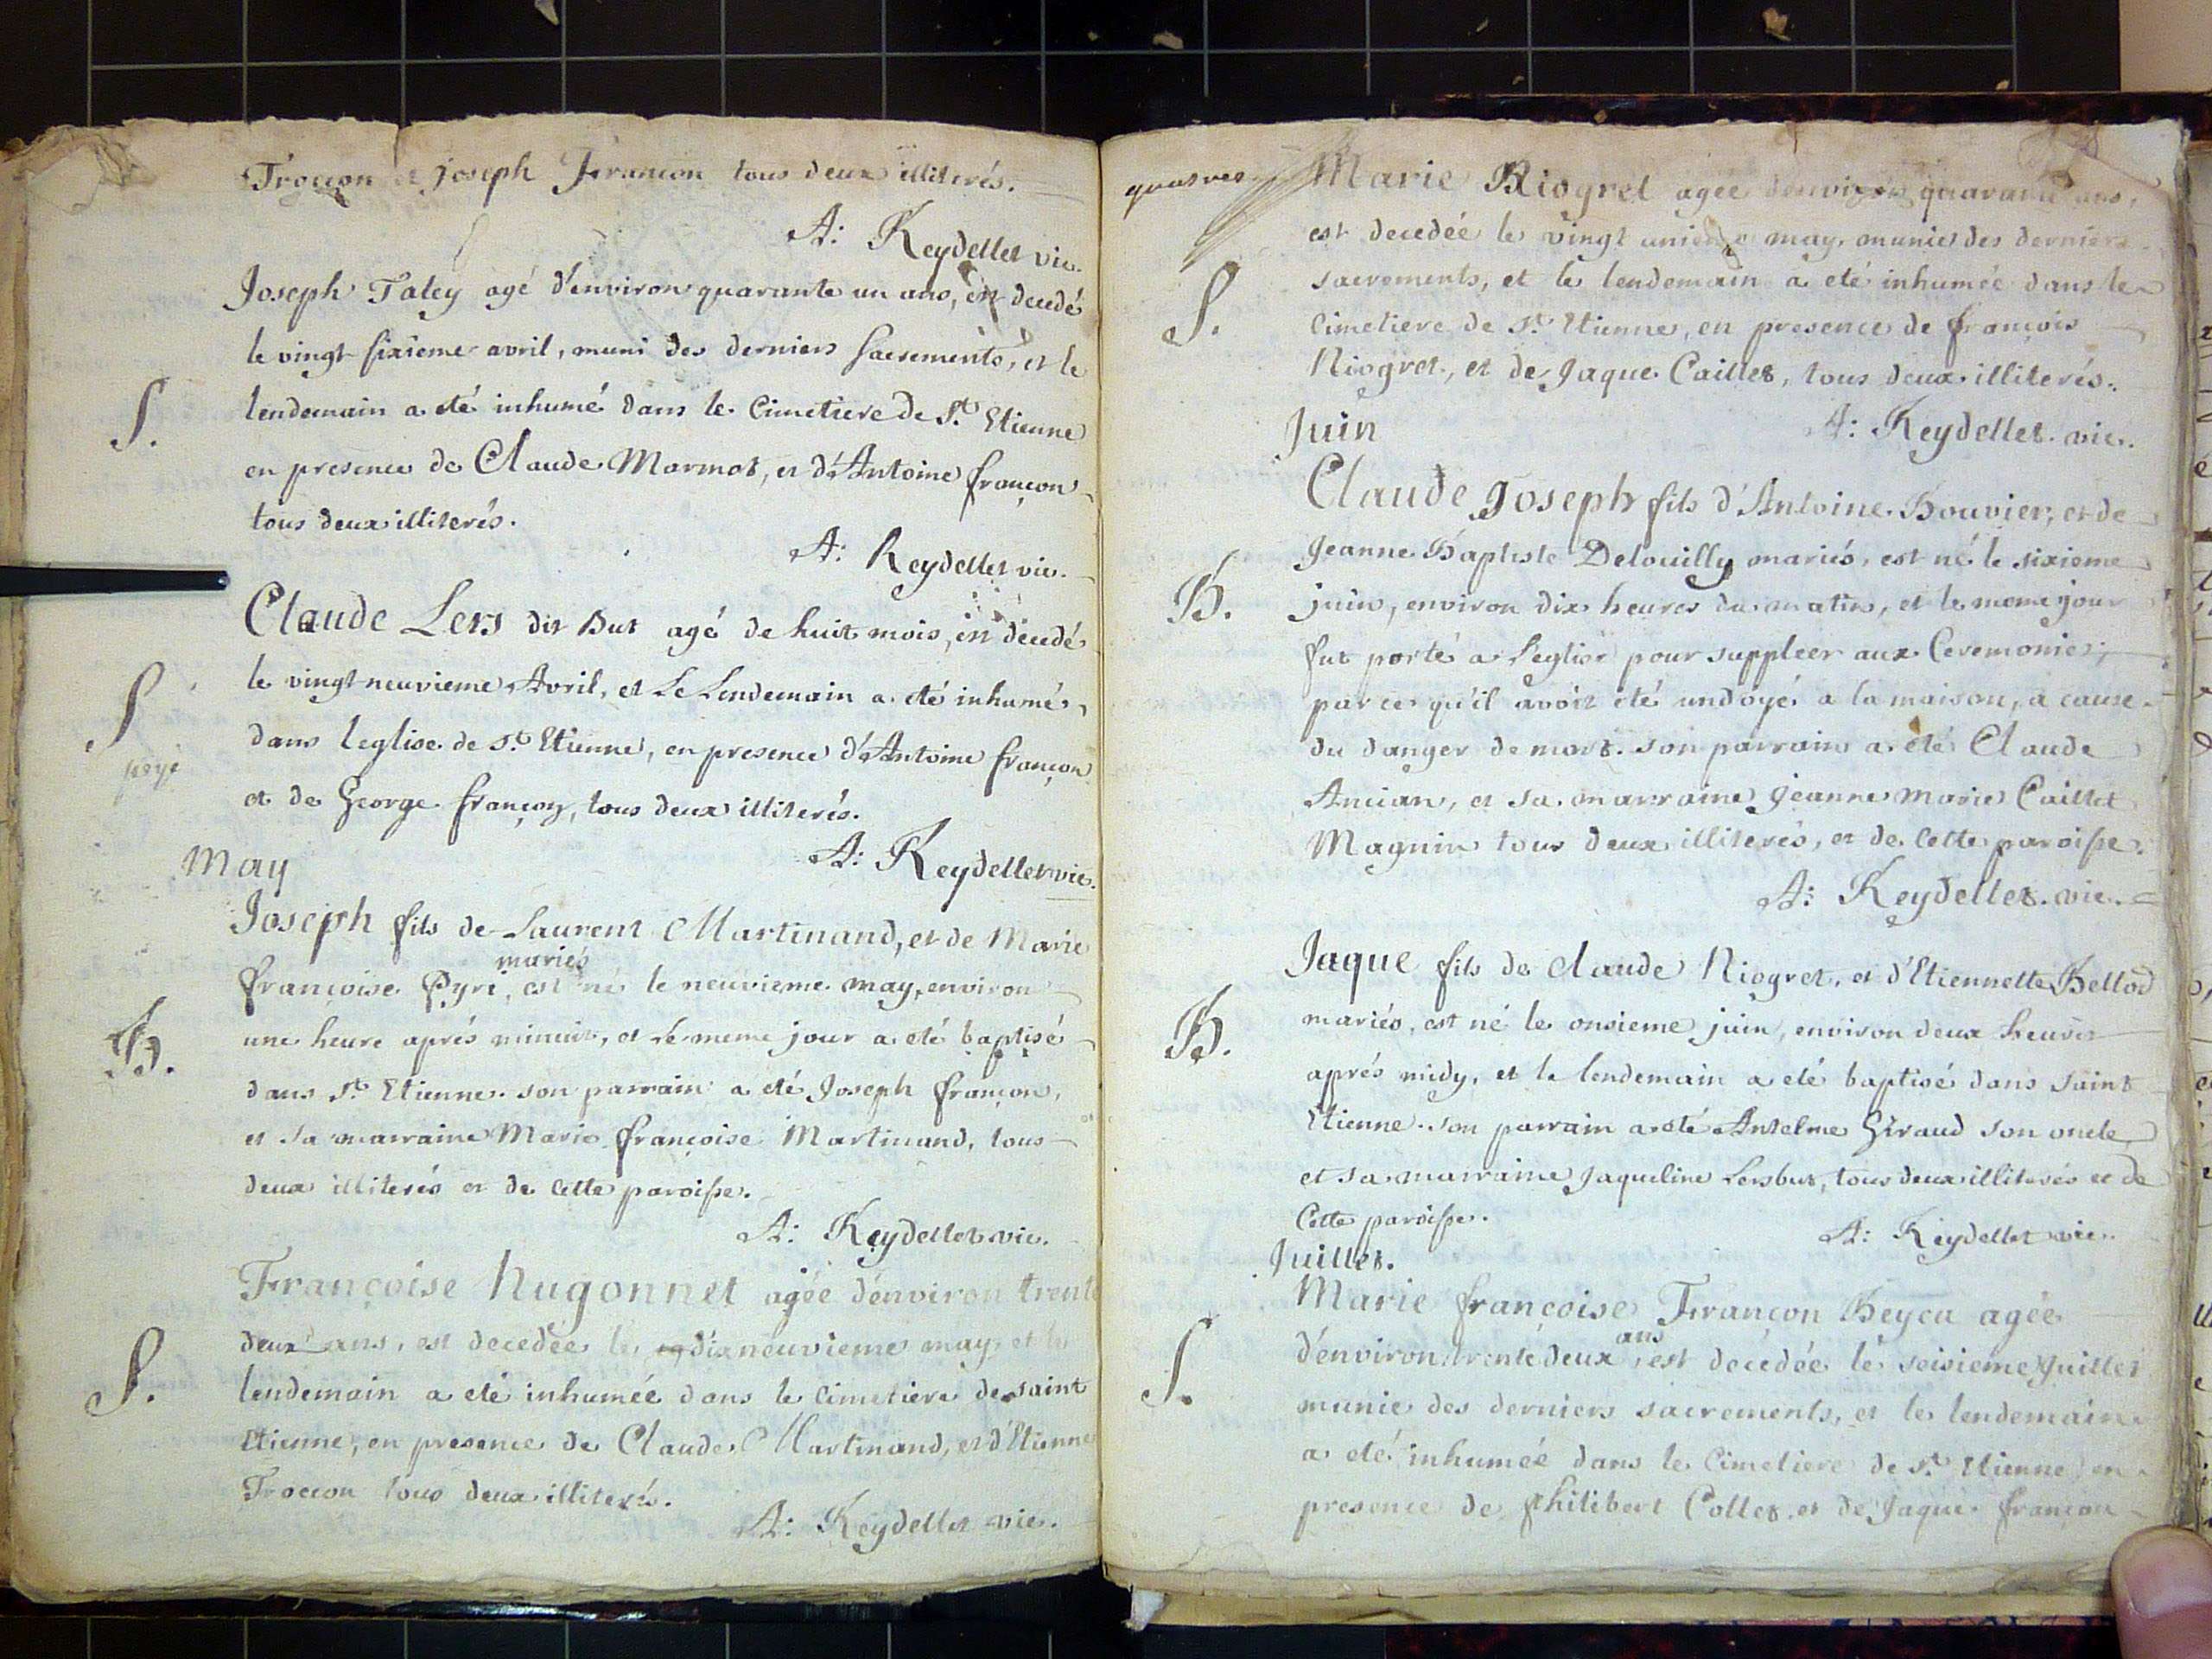 Troccon et joseph Françon tous deux illiterés.
A: Reydellet vic.
Joseph Taley agé d'environ quarante un ans, est decedé
le vingt sixieme avril, muni des derniers sacrements, et le
S.
lendemain a eté inhumé dans le Cimetiere de St. Etienne
en presence de Claude Marmot, et d'Antoine françon
tous deux illiterés.
A: Reydellet vic.
Claude Lers dit But agé de huit mois, est decedé
S
payé
le vingt neuvieme Avril, et Le Lendemain a eté inhumé
dans leglise de St. Etienne, en presence d'Antoine françon
et de George françon, tous deux illiterés.
A: Reydellet vic.
May
Joseph fils de Laurent Martinand, et de Marie
mariés
françoise Pyri, est né le neuvieme may, environ
B.
une heure aprés minuit, et Le meme jour a eté baptisé
dans St. Etienne. son parrain a eté Joseph françon,
et sa marraine Marie françoise Martinand, tous
deux illiterés et de Cette paroisse.
A: Reydellet vic.
Françoise Hugonnet agée d'environ trente
deux ans, est decedée le dix neuvieme may, et le
S.
lendemain a eté inhumée dans le cimetiere de saint
Etienne, en presence de Claude Martinand, et d'Etienne
Troccon tous deux illiterés.
A: Reydellet vic.
quatres
Marie Niogret agée d'environ quarante ans,
est decedée le vingt unieme may, munie des derniers
S.
sacrements, et le lendemain a eté inhumée dans le
Cimetiere de St. Etienne, en presence de françois
Niogret, et de Jaque Caillet, tous deux illiterés.
A: Reydellet. vic.
Juin
Claude Joseph fils d'Antoine Bouvier, et de
Jeanne Baptiste Delouilly mariés, est né le sixieme
B.
juin, environ dix heures du matin, et le meme jour
fut porté a L'eglise pour suppleer aux Ceremonies,
par ce qu'il avoit eté undoyé a la maison, a cause
du danger de mort. son parrain a eté Claude
Ancian, et sa marraine Jeanne Marie Caillet
Magnin tous deux illiterés, et de Cette paroisse.
A: Reydellet. vic.
Jaque fils de Claude Niogret, et d'Etiennette Bellod
B.
mariés, est né le onsieme juin, environ deux heures
aprés midy, et le lendemain a eté baptisé dans saint
Etienne. son parrain a eté Antelme Giraud son oncle
et sa marraine Jaqueline Lersbut, tous deux illiterés et de
Cette paroisse.
A: Reydellet vic.
Juillet.
Marie françoise Françon Beyca agée
ans
d'environ trente deux, est decédée le seisieme Juillet
S.
munie des derniers sacrements, et le lendemain
a eté inhumée dans le Cimetiere de St. Etienne en
presence de philibert Collet et de Jaque françon